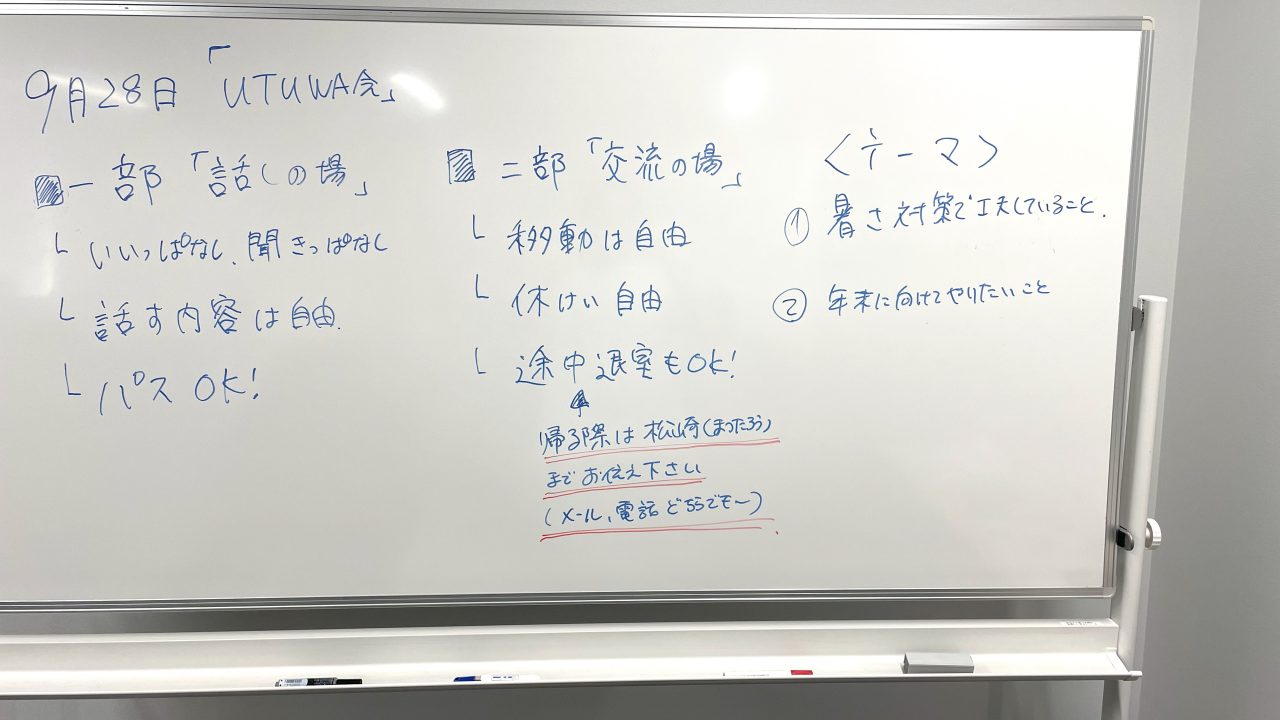 9月28日 「UTUWA会」
一部「話しの場」
└ いいっぱなし、聞きっぱなし
└ 話す内容は自由.
└ パスOK!
二部「交流の場」
└ 移動は自由
└ 休けい自由
└ 途中退室もOK!
帰る際は松崎(まつたろう)
までお伝え下さい
(メール、電話どちらでも〜)
〈テーマ〉
① 暑さ対策で工夫していること.
② 年末に向けてやりたいこと